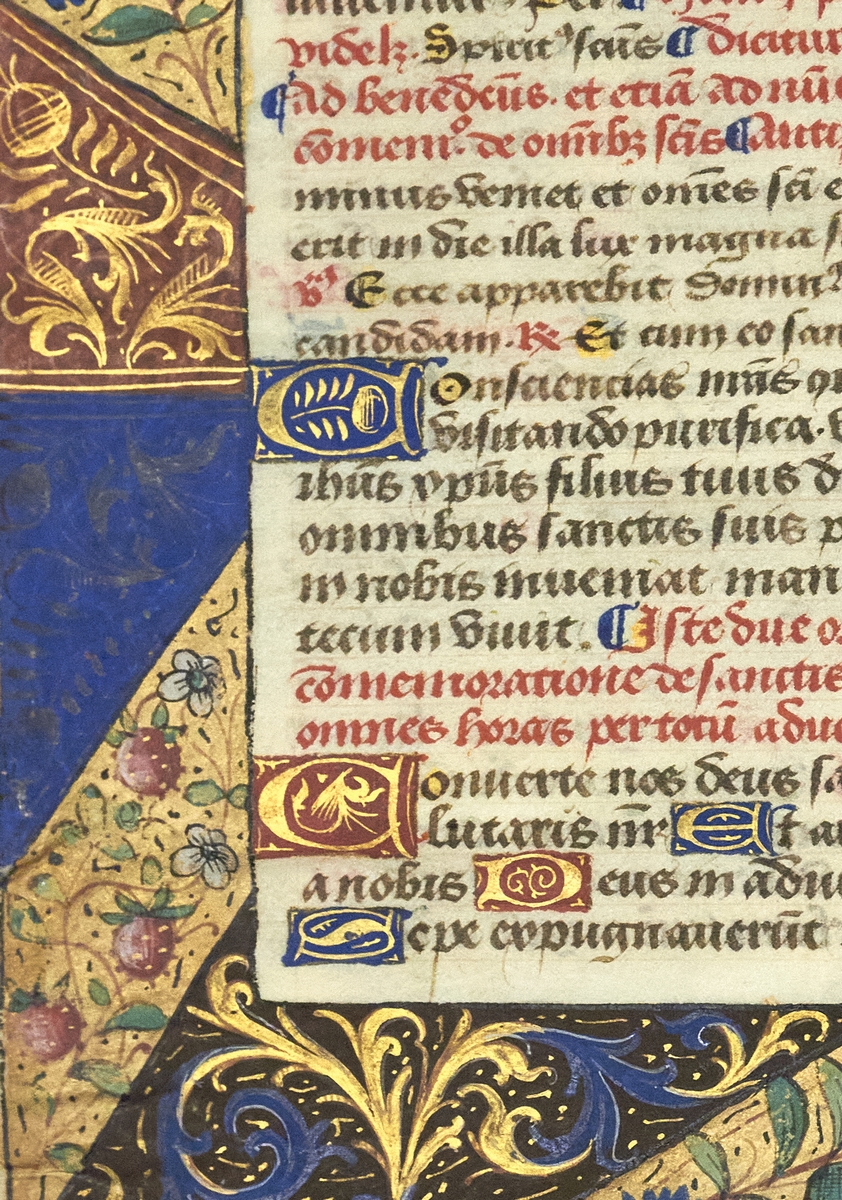 videlz. Spirit⁹ scūs ¶ dicitur
¶ Ad benedcūs. et etiā ad nū
cōmemᵒ. de omībꝫ scīs ¶ Anti
minus veniet et om̄es scī e
erit in die illa lux magna s
v̄ Ecce apparebit Domin⁹
candidam. ℟ Et cum eo san
Consciencias n̄rās q̄
visitando purifica. v
ihūs xpūs filius tuus d
omnibus sanctis suis p
in nobis inueniat man
tecum viuit. ¶ Iste due o
cōmemoratione de sanctis
omnes horas per totū adue
Conuerte nos deus sa
lutaris nr̄ Et a
a nobis Deus in adiu
Sepe expugnauerūt